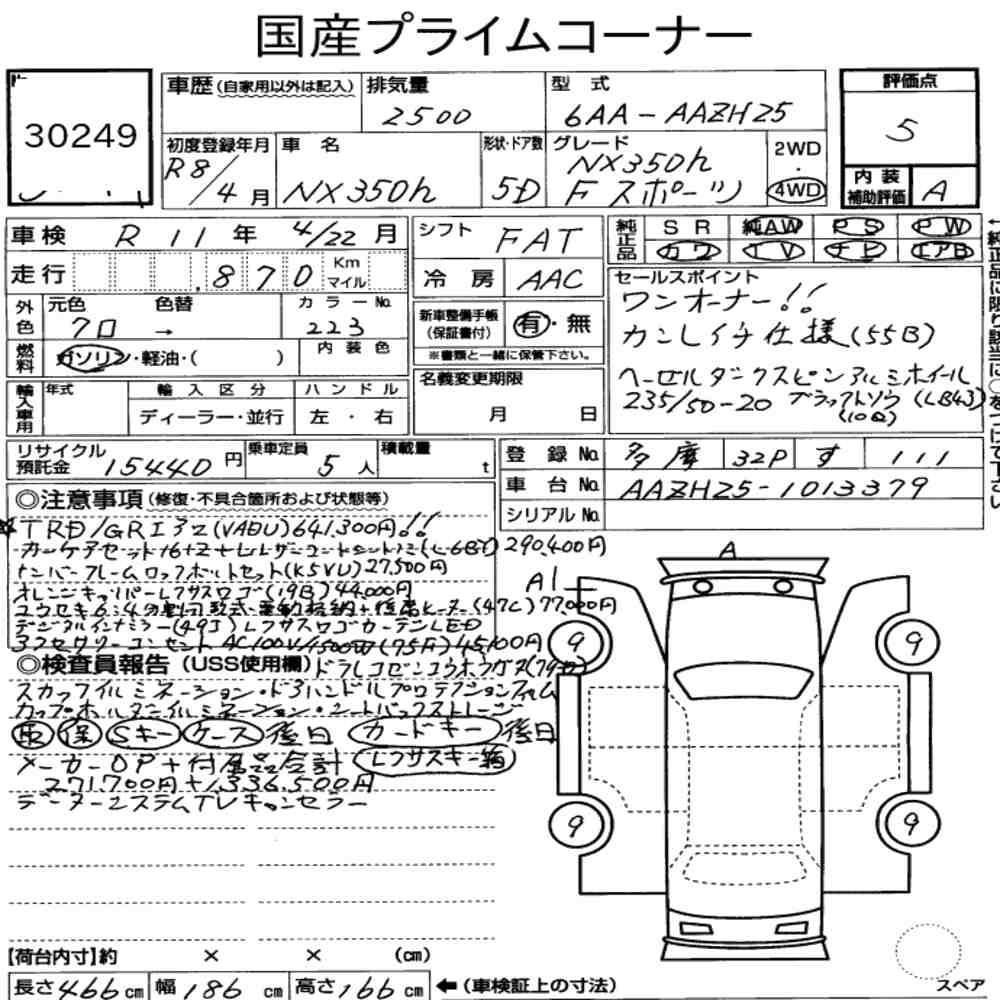 国産プライムコーナー
30249
車歴(自家用以外は記入)
排気量
2500
型 式
6AA-AAZH25
評価点
5
初度登録年月
R8/4月
車 名
NX350h
形状・ドア数
5D
グレード
NX350h
Fスポーツ
2WD
・
4WD
内 装
補助評価
A
車検 R 11 年 4/22 月
走行 .870 Km マイル
シフト FAT
冷 房 AAC
純正品
SR 純AW PS PW
カワ TV ナビ エアB
セールスポイント
ワンオーナー!!
カンレイチ仕様(55B)
235/50-20
(10Q)
外色
元色 色替
クロ →
カラーNo.
223
新車整備手帳
(保証書付)
有・無
※書類と一緒に保管下さい。
燃料
ガソリン・軽油・( )
内 装 色
輸入車用
年式
輸 入 区 分
ディーラー・並行
ハ ン ド ル
左 ・ 右
名義変更期限
月 日
リサイクル
預託金 15440 円
乗車定員
5 人
積載量
t
登 録 No. 多摩 32P す 111
車 台 No. AAZH25-1013379
シリアル No.
◎注意事項(修復・不具合箇所および状態等)
TRD/GRエアロ(VABU)641.300円!!
290.400円
ナンバーフレームロックボルトセット(K5VU)27,500円
オレンジキャリパーレクサスロゴ(19B)44,000円
(47C)77,000円
デジタルインナミラー(49J)レクサスロゴカーテンLED
アクセサリーコンセントAC100V/1500W(75A)45,100円
◎検査員報告(USS使用欄)
スカッフイルミネーション・ドアハンドルプロテクションフィルム
カップホルダーイルミネーション・シートバックストレージ
取 保 Sキー ケース 後日 カードキー 後日
メーカーOP+付属品合計 レクサスキー箱
271.700円+1,336,500円
データーシステムTVキャンセラー
A
A1
9
9
9
9
【荷台内寸】約 × × (cm)
長さ466cm 幅186cm 高さ166cm ←(車検証上の寸法)
スペア